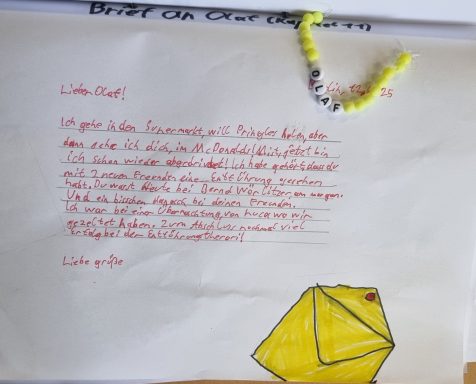 Brief an Olaf
OLAF
25
Lieber Olaf!
Ich gehe in den Supermarkt, will Pringles holen, aber
dann sehe ich dich, im McDonalds! Mist, jetzt bin
ich schon wieder abgedriftet! Ich habe gehört, dass du
mit 2 neuen Freunden eine Entführung gesehen
habt. Du warst Heute bei Bernd Wörlitzer, am morgen.
Und ein bisschen danach bei deinen Freunden.
Ich war bei einer Übernachtung, von Luca wo wir
gezeltet haben. Zum Abschluss nochmal viel
Erfolg bei der Entführungtheorie!
Liebe grüße